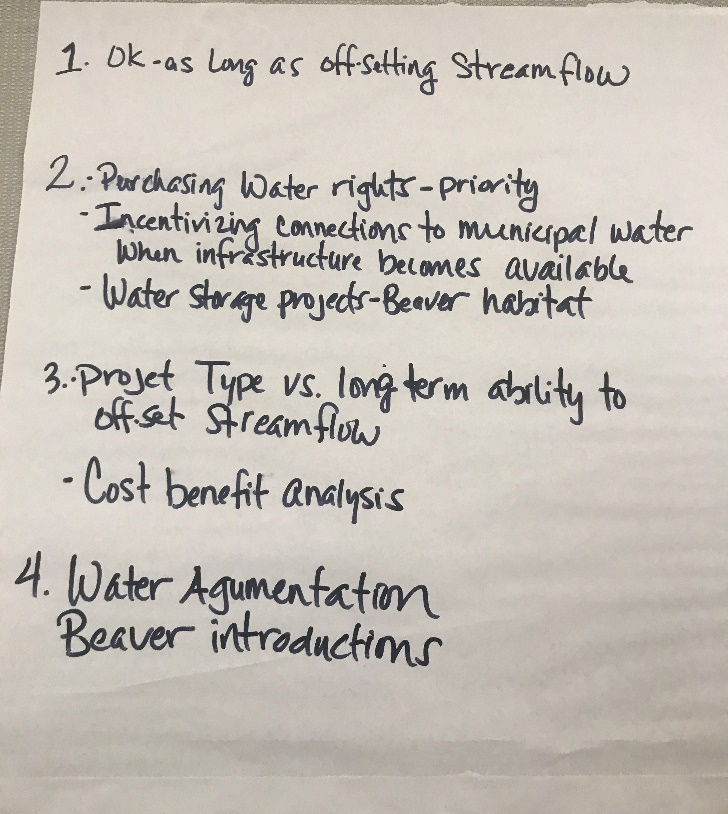 1. OK - as long as off-setting Streamflow
2. - Purchasing Water rights - priority
- Incentivizing connections to municipal water
When infrastructure becomes available
- Water storage projects - Beaver habitat
3. - Projet Type vs. long term ability to
off-set Streamflow
- Cost benefit analysis
4. Water Agumentation
Beaver introductions